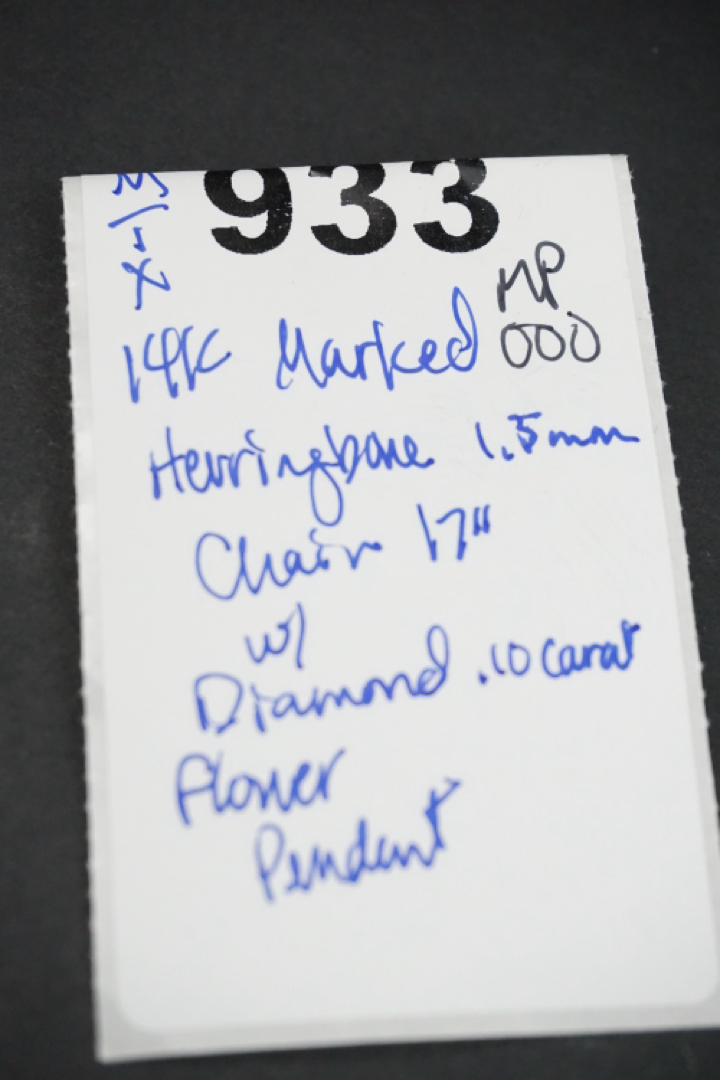 933
MP
14K Marked 000
Herringbone 1.5mm
Chain 17"
w/
Diamond .10 carat
Flower
Pendant